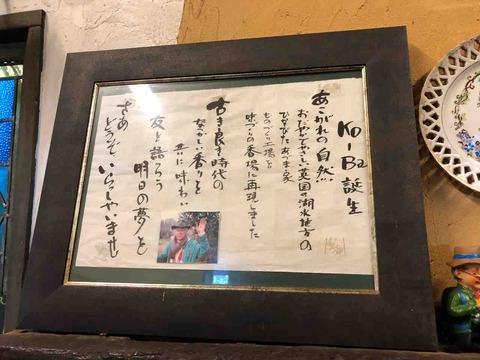 Ko-Ba 誕生
あこがれの自然
おだやかでやさしい英国の湖水地方の
ひなびたあづま家
ものづくり工場を
味づくりの香場に再現しました
古き良き時代の
なつかしい香りを
共に味わい
友と語ろう
明日の夢を
さあ
どうぞ、いらっしゃいませ